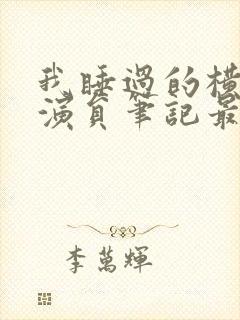 我睡過的橫
演員筆記最
李萬輝